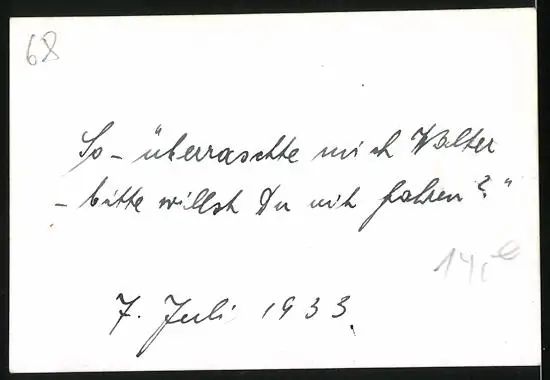 68
So - überraschte mich Walter
- bitte willst Du mit fahren?"
14,-
7. Juli 1933.